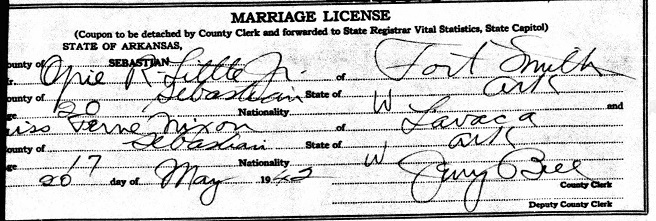 MARRIAGE LICENSE
(Coupon to be detached by County Clerk and forwarded to State Registrar Vital Statistics, State Capitol)
STATE OF ARKANSAS,
ounty of SEBASTIAN
r. Opie R. Little Jr. of Fort Smith
ounty of Sebastian State of Ark
ge 20 Nationality W and
iss Ferne Nixon of Lavaca
ounty of Sebastian State of Ark
ge 17 Nationality W
20 day of May 1942 Jerry Bell
County Clerk
Deputy County Clerk